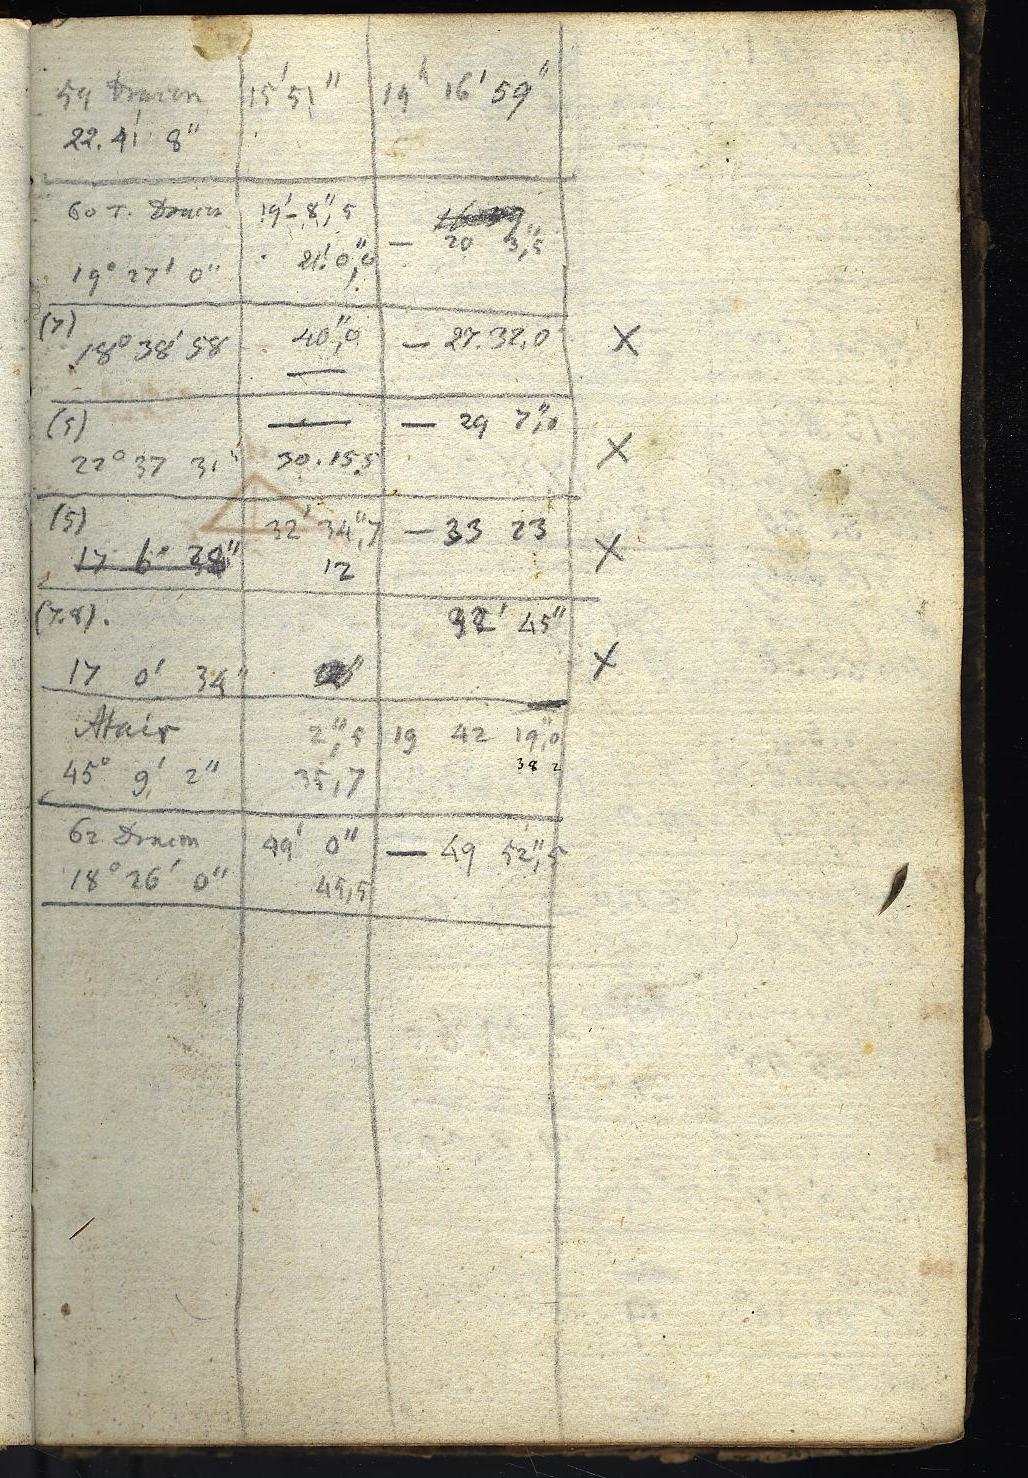 59 Dracon 15' 51" 19h 16' 59"
22. 41' 8"
60 τ. Dracon 19' - 8",5
— 20 3",5
19° 27' 0" 21' 0",0
(7)
18° 38' 58 40",0 — 27. 32,0 X
(5) — — 29 7",0
22° 37 31" 30. 15,5 X
(5) 32' 34",7 — 33 23
17 6° 38" 12 X
(7.8). 45"
17 0' 34" X
Atair 2",5 19 42 19",0
38 2
45° 9' 2" 35,7
62 Dracon 49' 0" — 49 52",5
18° 26' 0" 45,5